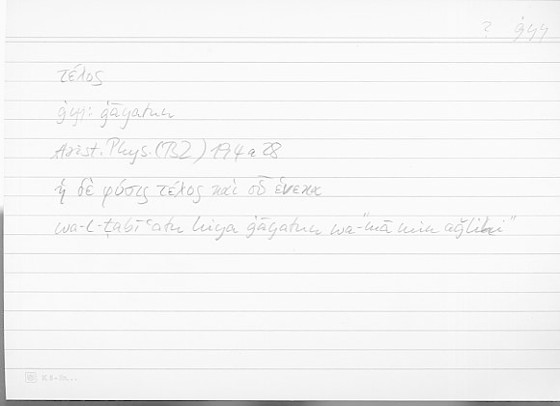 ? ġyy
τέλος
ġyy: ġāyatun
Arist. Phys. (B2) 194 a 28
ἡ δὲ φύσις τέλος καὶ οὗ ἕνεκα
wa-l-ṭabīʿatu hiya ġāyatun wa-"mā min aǧlihi"